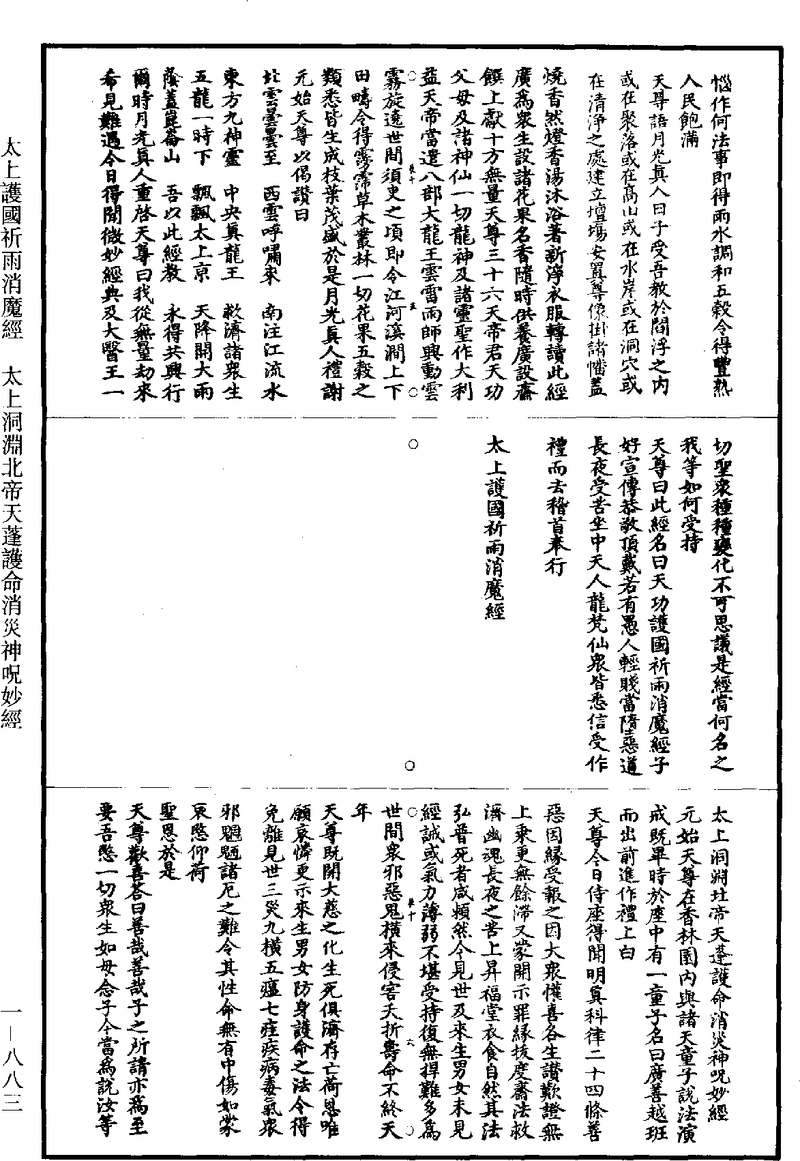 惱作何法事即得雨水調和五穀令得豐熟
人民飽滿
天尊語月光真人曰子受吾教於閻浮之內
或在聚落或在高山或在水岸或在洞穴或
在清淨之處建立壇場安置尊像掛諸幡蓋
燒香然燈香湯沐浴著新淨衣服轉讀此經
廣為衆生設諸花果名香隨時供養廣設齋
饌上獻十方無量天尊三十六天帝君天功
父母及諸神仙一切龍神及諸靈聖作大利
益天帝當遣八部大龍王雲雷雨師興動雲
霧旋遶世間須臾之頃即令江河溪澗上下
田疇令得霶霈草木叢林一切花果五穀之
類悉皆生成枝葉茂盛於是月光真人禮謝
元始天尊以偈讚曰
北雲曇曇至　西雲呼嘯來　南注江流水
東方九神靈　中央真龍王　救濟諸衆生
五龍一時下　飄飄太上京　天降開大雨
蔭蓋崑崙山　吾以此經教　永得共興行
爾時月光真人重啓天尊曰我從無量劫來
希見難遇今日得聞微妙經典及大醫王一
切聖衆種種變化不可思議是經當何名之
我等如何受持
天尊曰此經名曰天功護國祈雨消魔經子
好宣傳恭敬頂戴若有愚人輕賤當隋惡道
長夜受苦坐中天人龍梵仙衆皆悉信受作
禮而去稽首奉行
太上護國祈雨消魔經
太上洞淵北帝天蓬護命消災神呪妙經
元始天尊在香林園內與諸天童子說法演
戒既畢時於座中有一童子名曰廣善越班
而出前進作禮上白
天尊今日侍座得聞明真科律二十四條善
惡因緣受報之因大衆懽喜各生讚歎證無
上乘更無餘滯又蒙開示罪緣拔度齋法救
濟幽魂長夜之苦上昇福堂衣食自然其法
弘普死者咸頼然今見世及來生男女未見
經誡或氣力薄弱不堪受持復無捍難多為
世間衆邪惡鬼橫來侵害夭折壽命不終天
年
天尊既開大慈之化生死俱濟存亡荷恩唯
願哀憐更示來生男女防身護命之法令得
免離見世三災九橫五瘟七疰疾病毒氣衆
邪魍魎諸厄之難令其性命無有中傷如蒙
哀愍仰荷
聖恩於是
天尊歡喜荅曰善哉善哉子之所請亦為至
要吾愍一切衆生如母念子今當為說汝等
太上護國祈雨消魔經　太上洞淵北帝天蓬護命消災神呪妙經
一—八八三